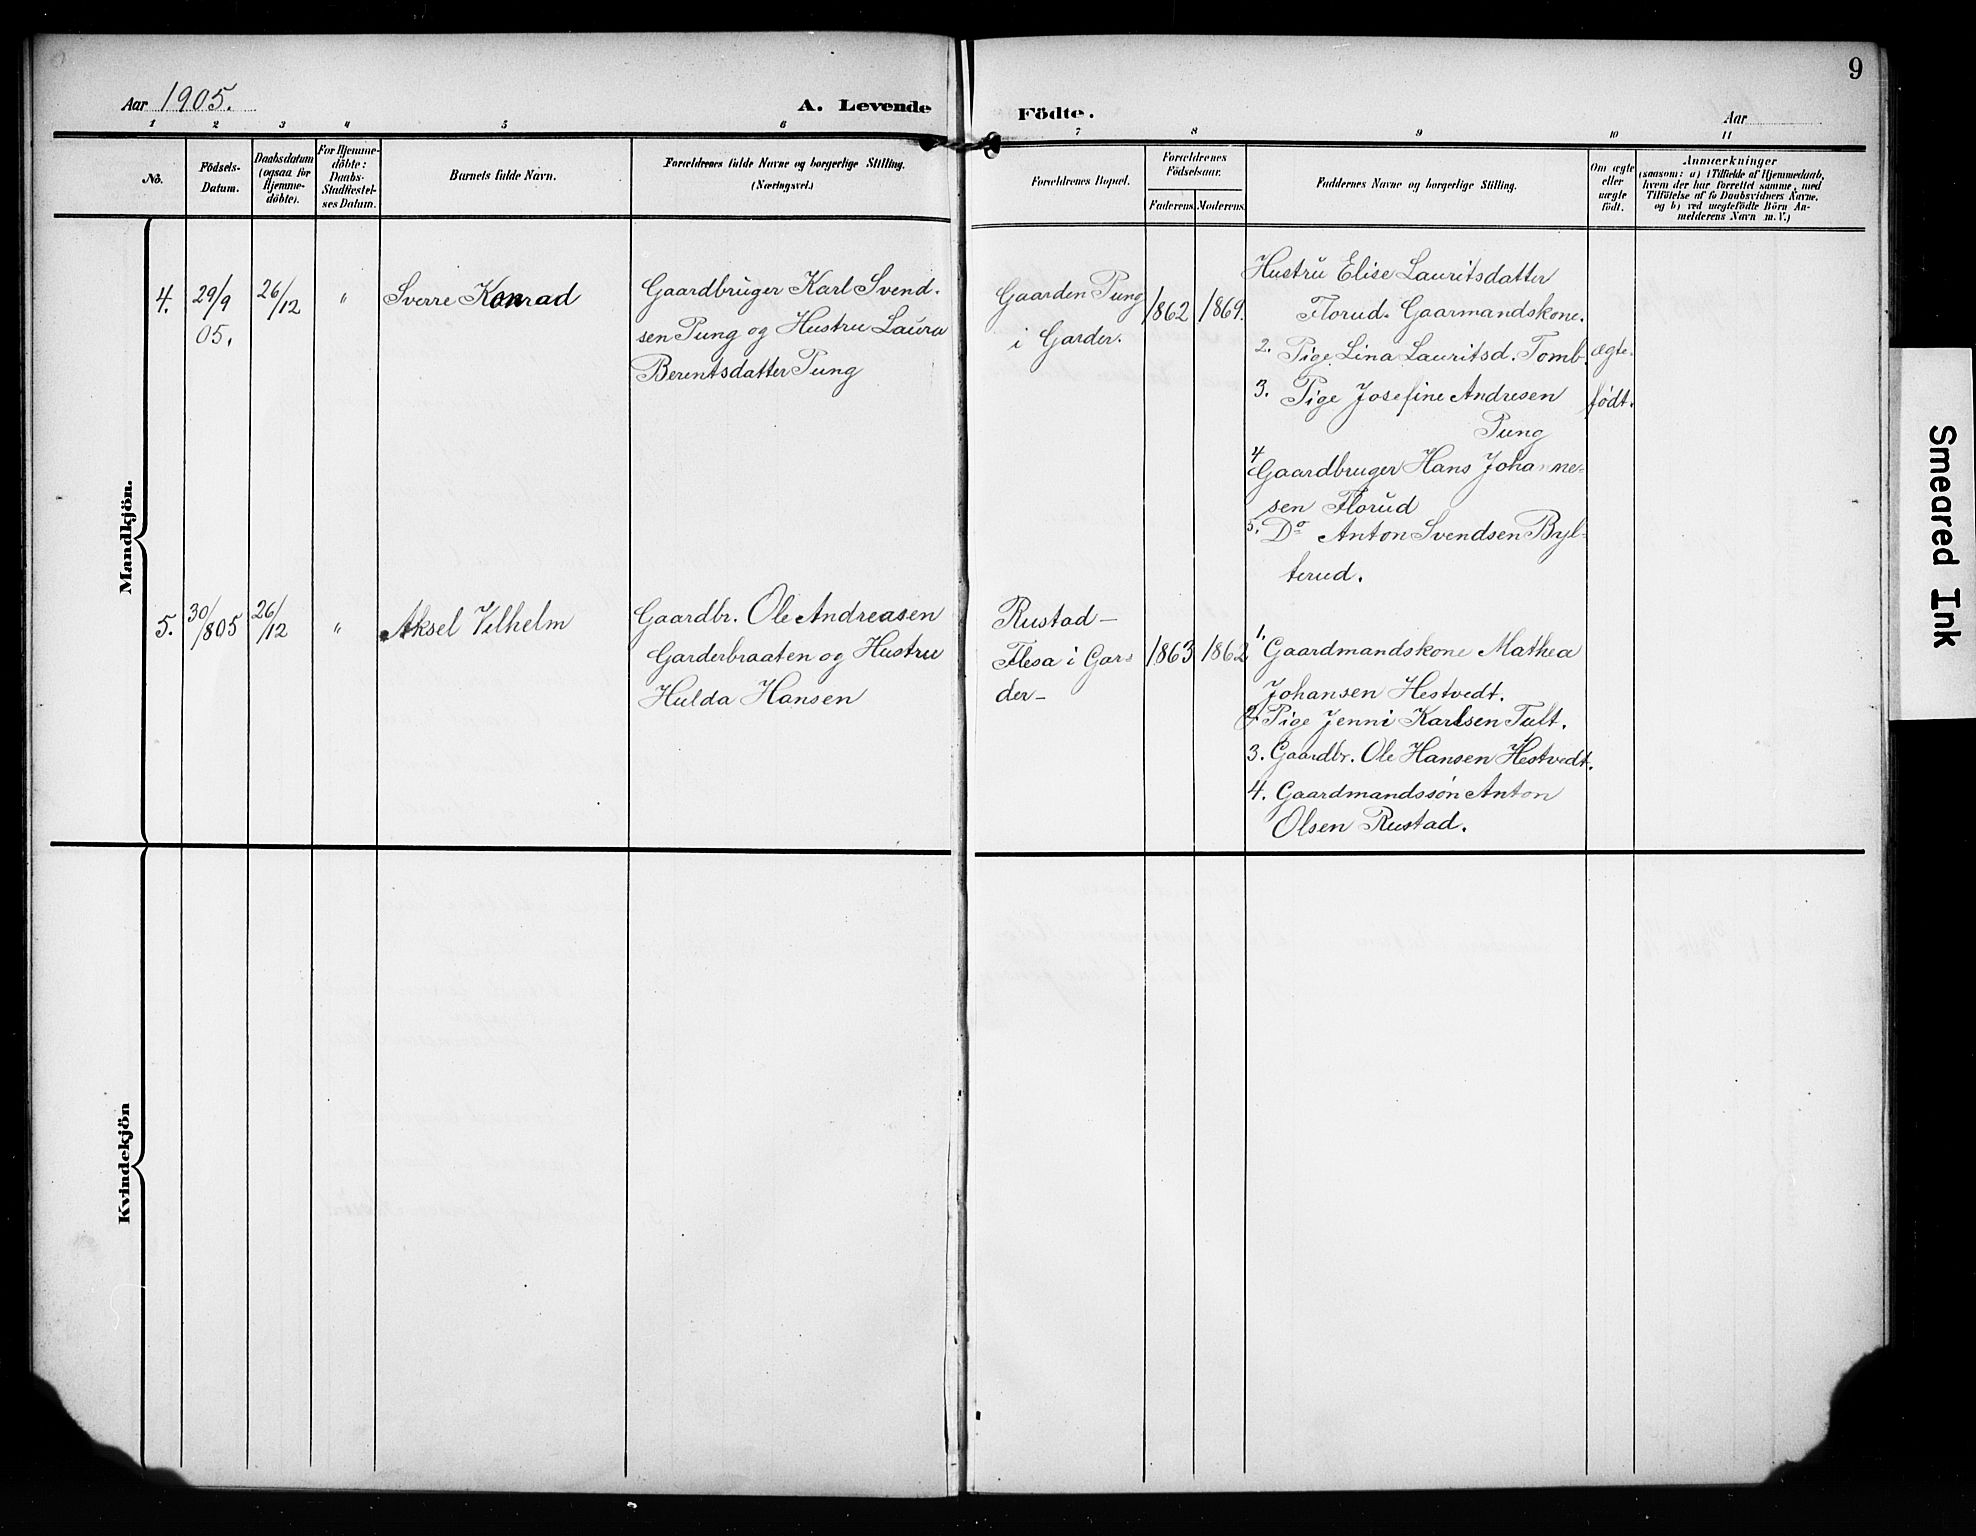 9
Aar 1905.
A. Levende Födte.
Aar
1 2 3 4 5 6 7 8 9 10 11
No.
Födsels-
Datum.
Daabsdatum
(ogsaa for
Hjemme-
döbte).
For Hjemme-
döbte:
Daabs-
Stadfæstel-
ses Datum.
Barnets fulde Navn.
Forældrenes fulde Navne og borgerlige Stilling.
(Næringsvei.)
Forældrenes Bopæl.
Forældrenes
Födselsaar.
Faderens. Moderens.
Faddernes Navne og borgerlige Stilling.
Om ægte
eller
uægte
födt.
Anmærkninger
(saasom: a) i Tilfælde af Hjemmedaab,
hvem der har forrettet samme, med
Tilföielse af to Daabsvidners Navne,
og b) ved uægtefödte Börn An-
melderens Navn m. V.)
Mandkjön.
4.
29/9
05.
26/12
"
Sverre Konrad
Gaardbruger Karl Svend-
sen Pung og Hustru Laura
Berentsdatter Pung
Gaarden Pung
i Garder.
1862
1869.
Hustru Elise Lauritsdatter
Florud. Gaarmandskone.
2. Pige Lina Lauritsd. Tomb.
3. Pige Josefine Andresen
Pung
4 Gaardbruger Hans Johanne-
sen Florud
5. Do Anton Svendsen Byl-
terud.
ægte-
født.
5.
30/805
26/12
"
Aksel Vilhelm
Gaardbr. Ole Andreasen
Garderbraaten og Hustru
Hulda Hansen
Rustad-
Flesa i Gar-
der-
1863
1862
1. Gaardmandskone Mathea
Johansen Hestvedt.
2. Pige Jenni Karlsen Tult.
3. Gaardbr. Ole Hansen Hestvedt.
4. Gaardmandssøn Anton
Olsen Rustad.
Kvindekjön
Smeared Ink